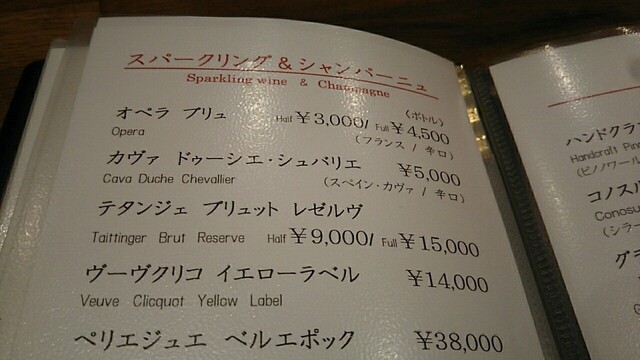 スパークリング&シャンパーニュ
Sparkling wine & Champagne
(ボトル)
オペラ ブリュ Half ¥3,000/ Full ¥4,500
Opera (フランス / 辛口)
カヴァ ドゥーシエ・シュバリエ ¥5,000
Cava Duche Chevallier (スペイン・カヴァ / 辛口)
テタンジェ ブリュット レゼルヴ
Taittinger Brut Reserve Half ¥9,000/ Full ¥15,000
ヴーヴクリコ イエローラベル ¥14,000
Veuve Clicquot Yellow Label
ペリエジュエ ベルエポック ¥38,000
ハンドクラフ
Handcraft Pin
(ピノノワール
コノス
Conosu
(シラー
グラ